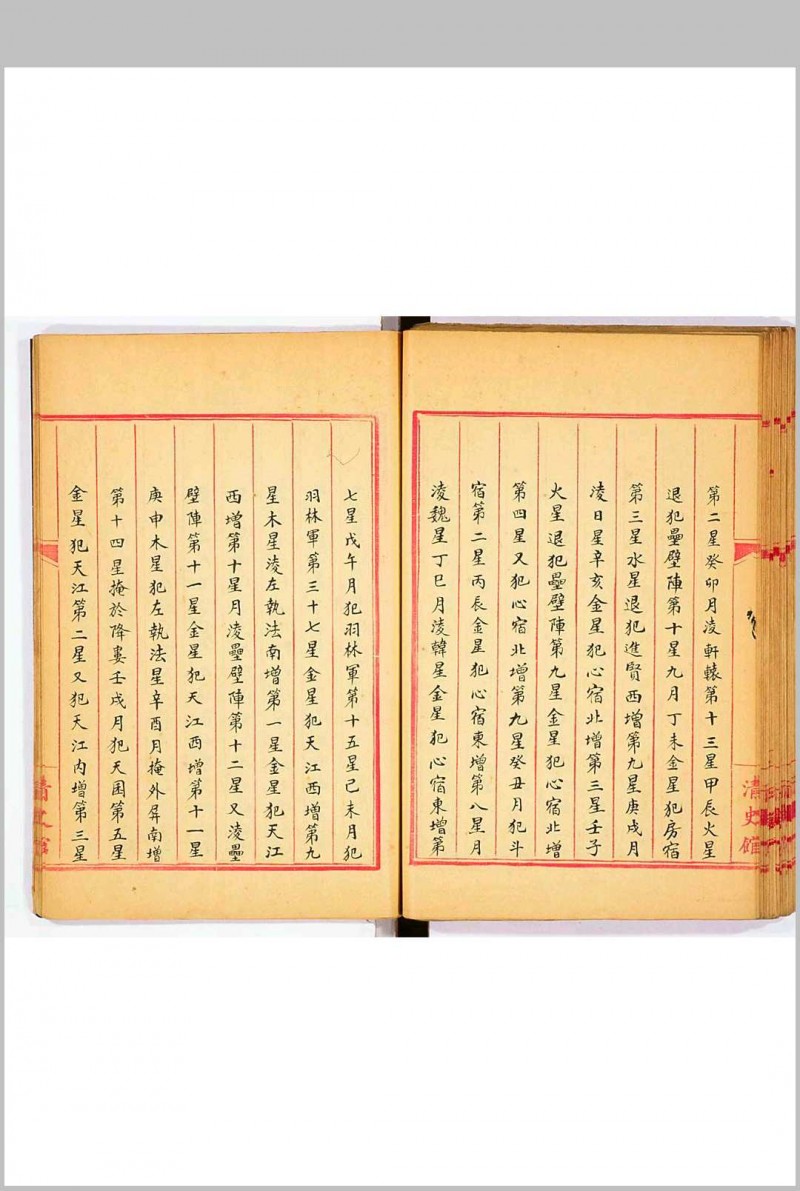 第二星癸卯月凌軒轅第十三星甲辰火星
退犯壘壁陣第十星九月丁未金星犯房宿
第三星水星退犯進賢西增第九星庚戌月
凌日星辛亥金星犯心宿北增第三星壬子
火星退犯壘壁陣第九星金星犯心宿北增
第四星又犯心宿北增第九星癸丑月犯斗
宿第二星丙辰金星犯心宿東增第八星月
凌魏星丁巳月凌韓星金星犯心宿東增第
清史館
七星戊午月犯羽林軍第十五星己未月犯
羽林軍第三十七星金星犯天江西增第九
星木星凌左執法南增第一星金星犯天江
西增第十星月凌壘壁陣第十二星又凌壘
壁陣第十一星金星犯天江西增第十一星
庚申木星犯左執法星辛酉月掩外屏南增
第十四星掩於降婁壬戌月犯天囷第五星
金星犯天江第二星又犯天江内增第三星
清史館